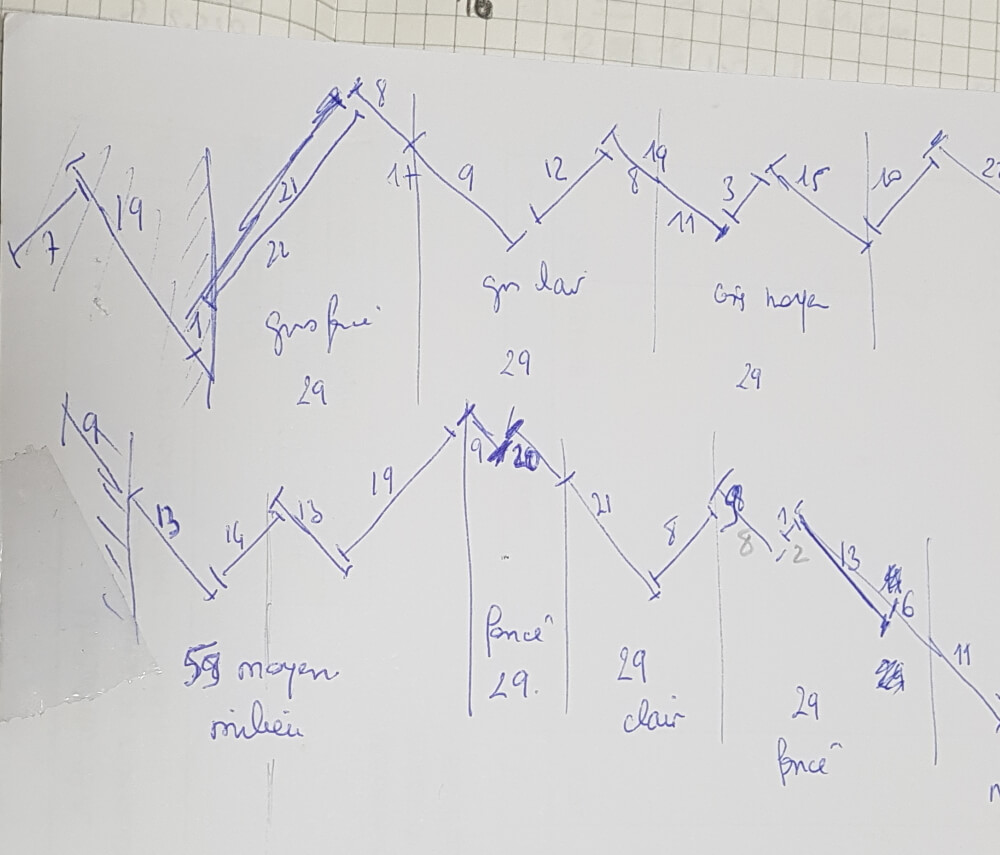 16
8
19
21
17
9
12
8
3
15
10
7
19
22
11
1
gris foncé
gris clair
Gris moyen
29
29
29
9
13
14
13
19
9
20
21
8
8
2
13
6
11
58 moyen
milieu
foncé
29.
29
clair
29
foncé